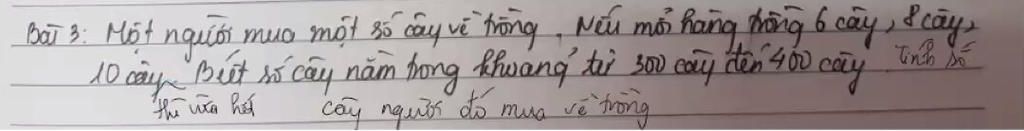 Bài 3: Một người mua một số cây về trồng. Nếu mỗi hàng trồng 6 cây, 8 cây,
10 cây Biết số cây nằm trong khoảng từ 300 cây đến 400 cây. Tính số
thì vừa hết cây người đó mua về trồng